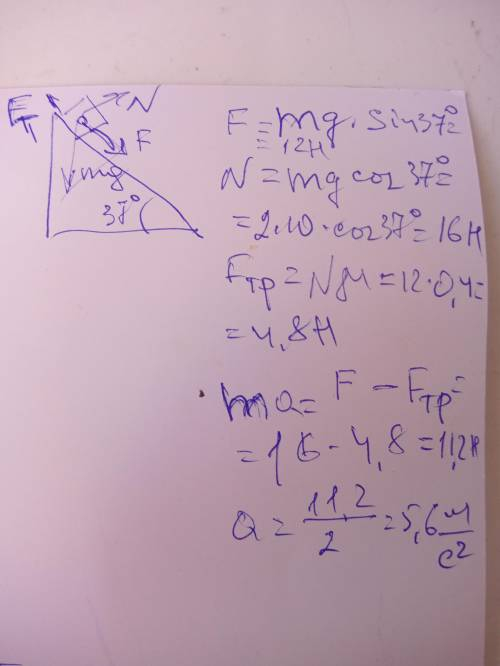 Fтр
N
F
mg
37°
F = mg · sin37° =
= 12H
N = mg cos 37° =
= 2·10·cos37° = 16H
Fтр = Nμ = 12·0,4 =
= 4,8H
ma = F - Fтр =
= 16 - 4,8 = 11,2H
a = 11,2 / 2 = 5,6 м/с²